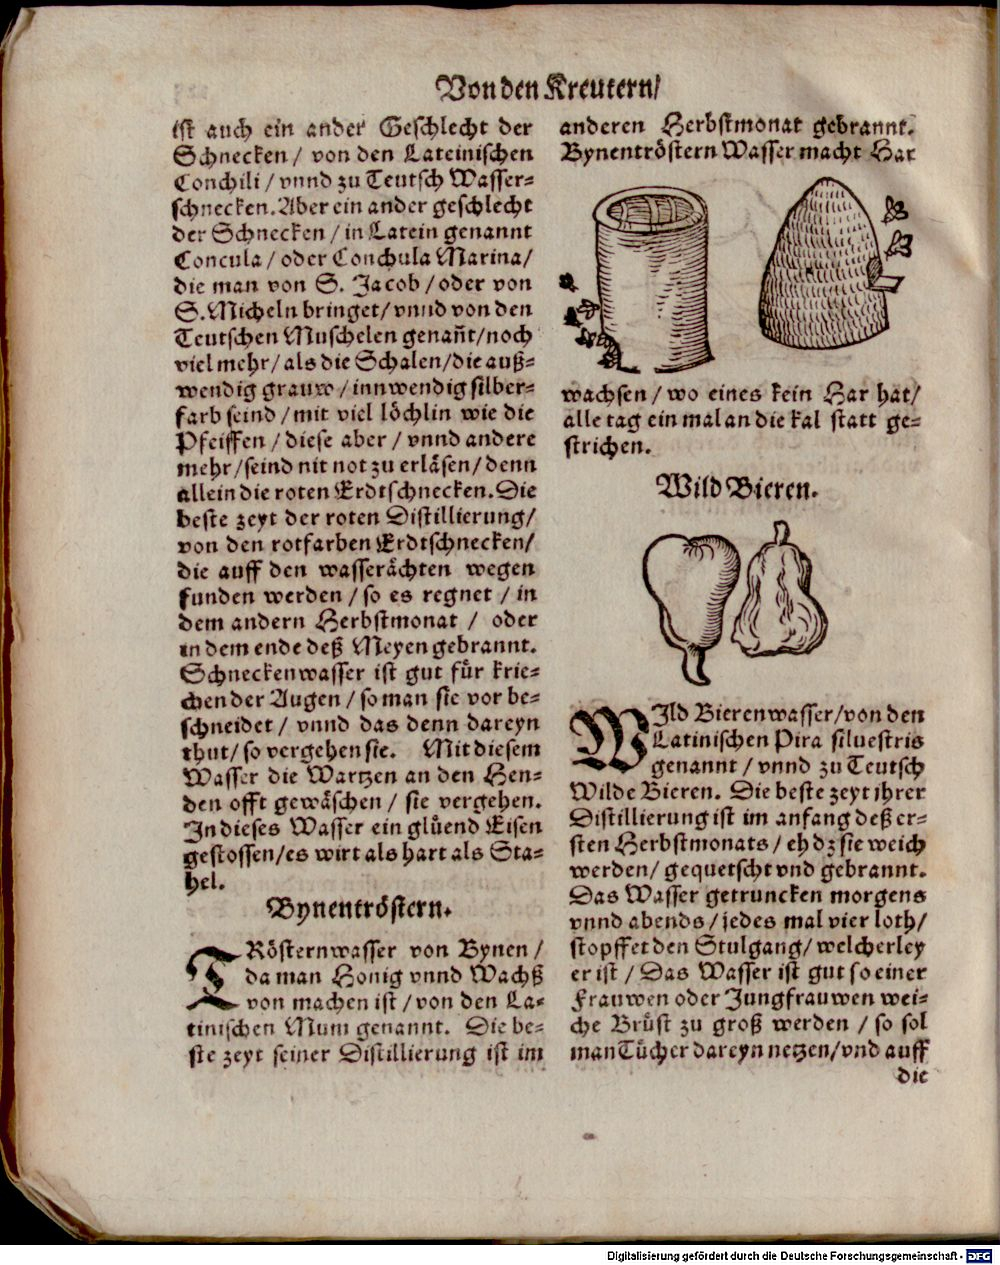 Von den Kreutern/
ist auch ein ander Geschlecht der
Schnecken / von den Lateinischen
Conchili / vnnd zu Teutsch Wasser=
schnecken. Aber ein ander geschlecht
der Schnecken / in Latein genannt
Concula / oder Conchula Marina /
die man von S. Jacob / oder von
S. Micheln bringet / vnnd von den
Teutschen Muschelen genañt / noch
viel mehr / als die Schalen / die auß=
wendig grauw / innwendig silber=
farb seind / mit viel löchlin wie die
Pfeiffen / diese aber / vnnd andere
mehr / seind nit not zu erläsen / denn
allein die roten Erdtschnecken. Die
beste zeyt der roten Distillierung /
von den rotfarben Erdtschnecken /
die auff den wasserächten wegen
funden werden / so es regnet / in
dem andern Herbstmonat / oder
in dem ende deß Meyen gebrannt.
Schneckenwasser ist gut für krie=
chen der Augen / so man sie vor be=
schneidet / vnnd das denn dareyn
thut / so vergehen sie. Mit diesem
Wasser die Wartzen an den Hen=
den offt gewäschen / sie vergehen.
In dieses Wasser ein glüend Eisen
gestossen / es wirt als hart als Sta=
hel.
Bynentröstern.
TRösternwasser von Bynen /
da man Honig vnnd Wachß
von machen ist / von den La=
tinischen Mum genannt. Die be=
ste zeyt seiner Distillierung ist im
anderen Herbstmonat gebrannt.
Bynentröstern Wasser macht Har
wachsen / wo eines kein Har hat /
alle tag ein mal an die kal statt ge=
strichen.
Wild Bieren.
WIld Bierenwasser / von den
Latinischen Pira siluestris
genannt / vnnd zu Teutsch
Wilde Bieren. Die beste zeyt ihrer
Distillierung ist im anfang deß er=
sten Herbstmonats / eh dz sie weich
werden / gequetscht vnd gebrannt.
Das Wasser getruncken morgens
vnnd abends / jedes mal vier loth /
stopffet den Stulgang / welcherley
er ist / Das Wasser ist gut so einer
Frauwen oder Jungfrauwen wei=
che Brüst zu groß werden / so sol
man Tücher dareyn netzen / vnd auff
die
Digitalisierung gefördert durch die Deutsche Forschungsgemeinschaft - DFG